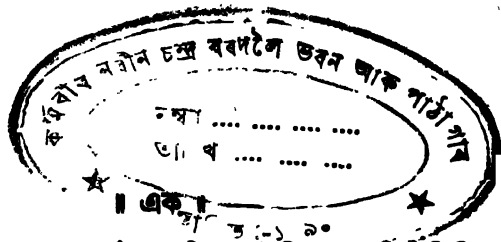 কৰ্মবীৰ নবীন চন্দ্ৰ বৰদলৈ ভৱন আৰু পাঠাগাৰ
নম্বৰ .... .... .... ....
.... .... ....
॥ এক ॥